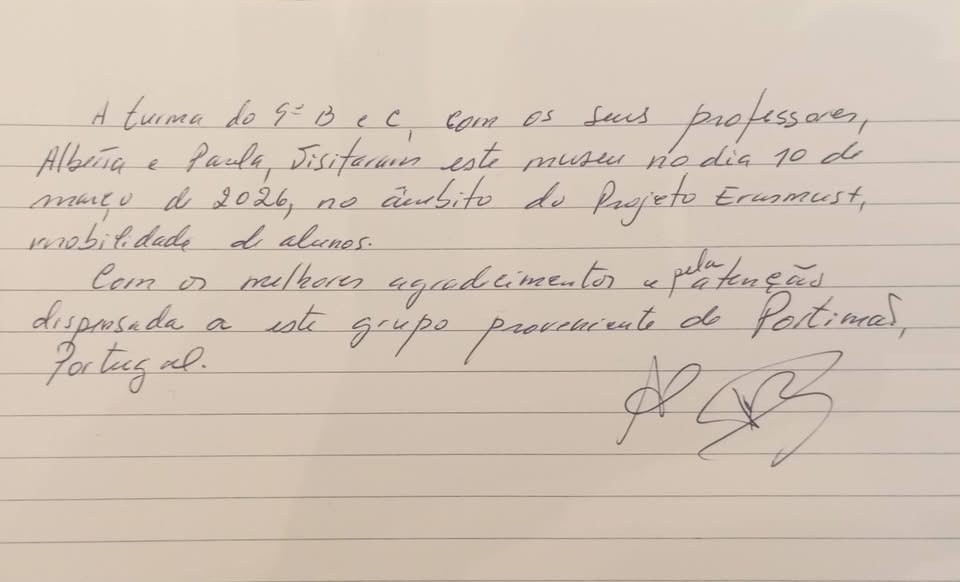 A turma do 9º B e C, com os seus professores,
e Paula, visitaram este museu no dia 10 de
março de 2026, no âmbito do Projeto Erasmus+,
mobilidade de alunos.
Com os melhores agradecimentos e pela atenção
dispensada a este grupo proveniente de Portimão,
Portugal.